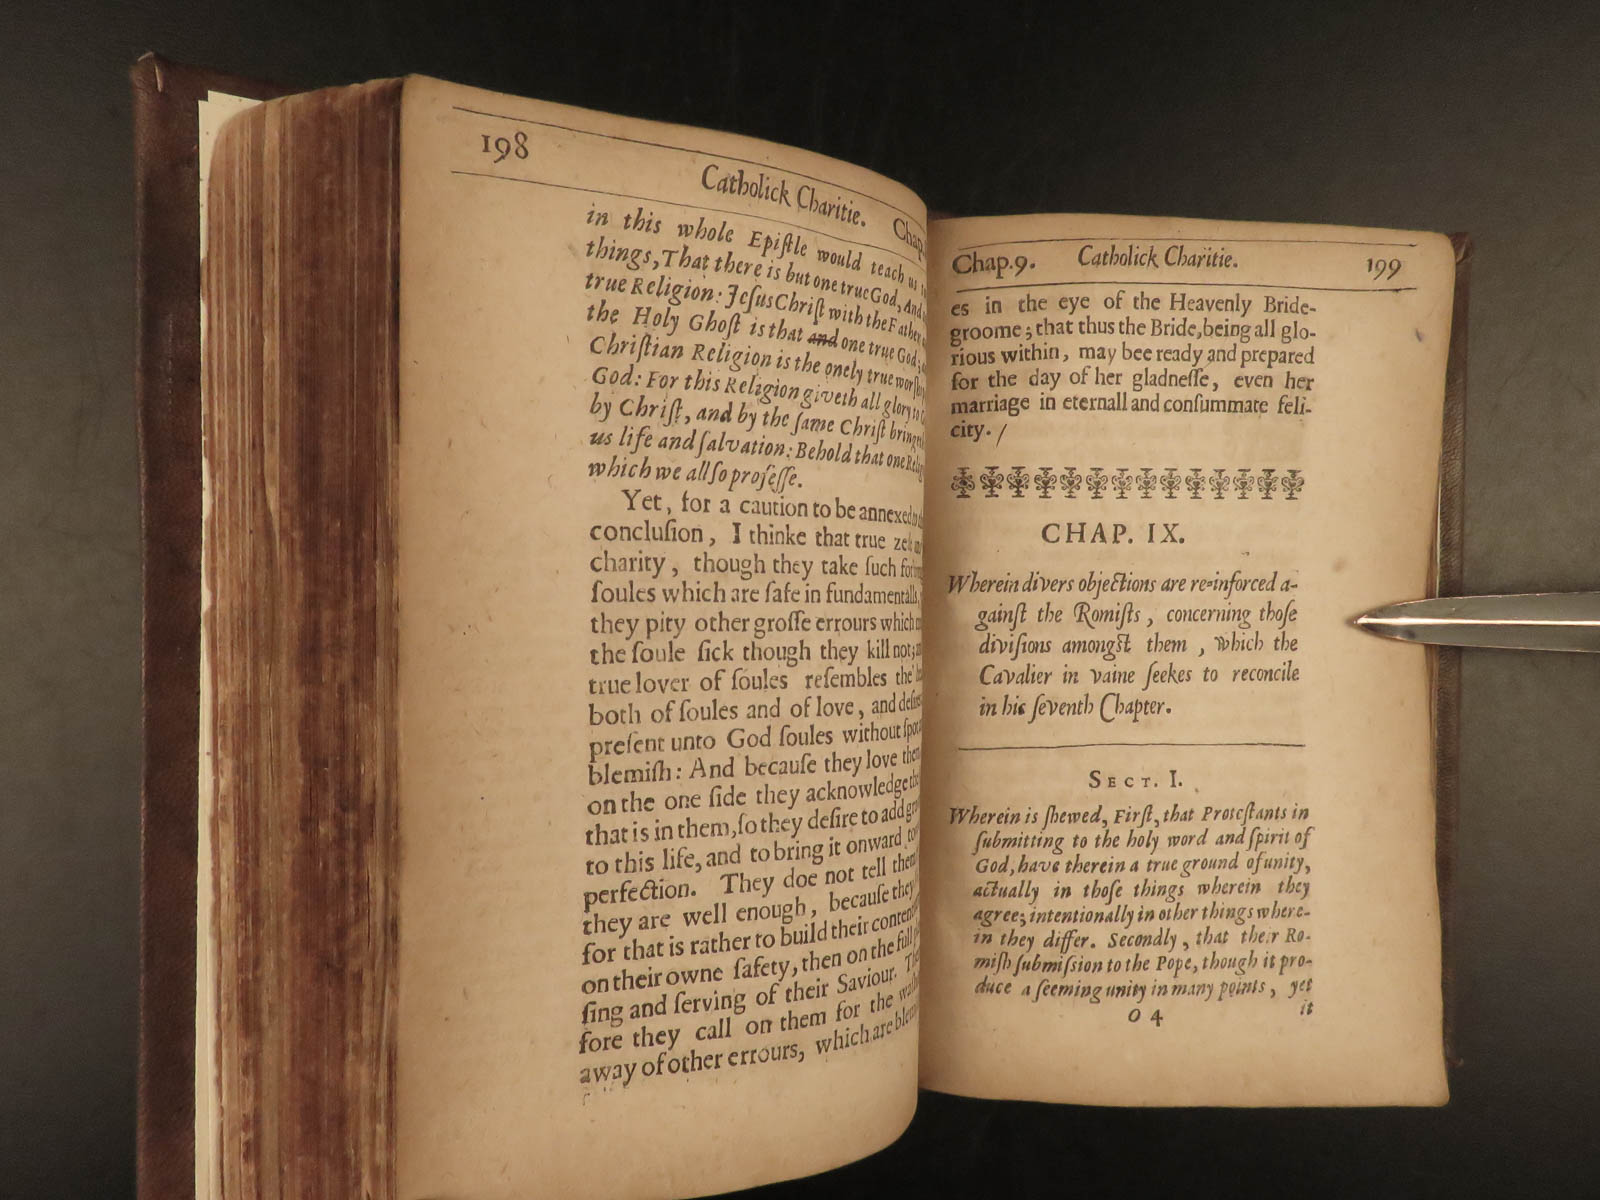 198
Catholick Charitie.
in this whole Epiſtle would teach us
things, That there is but one true God, And
true Religion: Jeſus Chriſt with the Father
the Holy Ghoſt is that and one true God;
Chriſtian Religion is the onely true
God: For this Religion giveth all glory to
by Chriſt, and by the ſame Chriſt
us life and ſalvation: Behold that one
which we all ſo profeſſe.
Yet, for a caution to be annexed
concluſion, I thinke that true
charity, though they take ſuch
ſoules which are ſafe in fundamentalls,
they pity other groſſe errours which
the ſoule ſick though they kill not;
true lover of ſoules reſembles the
both of ſoules and of love, and
preſent unto God ſoules without
blemiſh: And becauſe they love them
on the one ſide they acknowledge
that is in them, ſo they deſire to add
to this life, and to bring it onward
perfection. They doe not tell them
they are well enough, becauſe they
for that is rather to build their
on their owne ſafety, then on the full
ſing and ſerving of their Saviour.
fore they call on them for the
away of other errours, which are
Chap.9. Catholick Charitie. 199
es in the eye of the Heavenly Bride-
groome; that thus the Bride, being all glo-
rious within, may bee ready and prepared
for the day of her gladneſſe, even her
marriage in eternall and conſummate feli-
city. /
CHAP. IX.
Wherein divers objections are re-inforced a-
gainſt the Romiſts, concerning thoſe
diviſions amongſt them, which the
Cavalier in vaine ſeekes to reconcile
in his ſeventh Chapter.
SECT. I.
Wherein is ſhewed, Firſt, that Proteſtants in
ſubmitting to the holy word and ſpirit of
God, have therein a true ground of unity,
actually in thoſe things wherein they
agree; intentionally in other things where-
in they differ. Secondly, that their Ro-
miſh ſubmiſſion to the Pope, though it pro-
duce a ſeeming unity in many points, yet
O 4 it